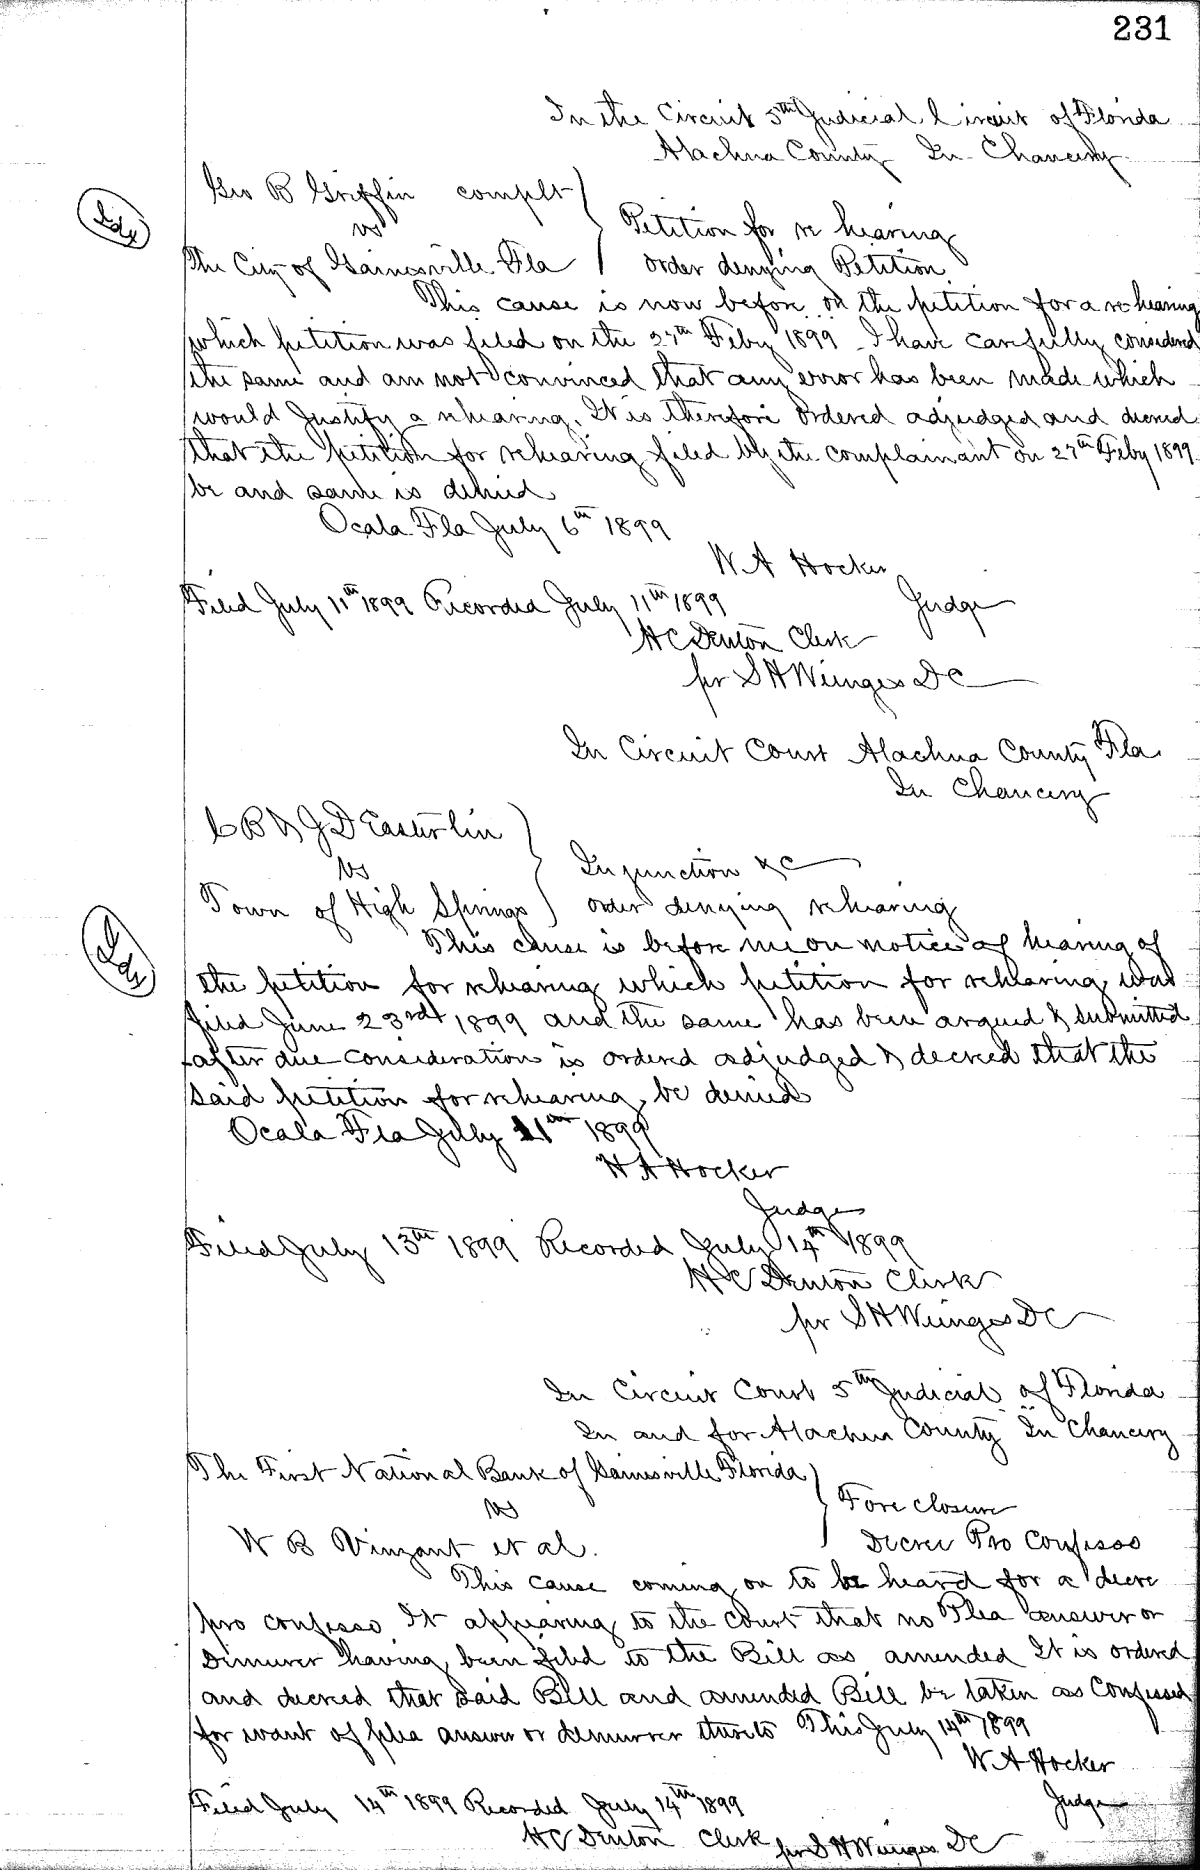 231
In the Circuit 5th Judicial Circuit of Florida
Alachua County In Chancery
Geo B Griffin complt
vs
Petition for re hearing
The City of Gainesville Fla
order denying Petition
This cause is now before on the petition for a rehearing
which petition was filed on the 27th Feby 1899 I have carefully considered
the same and am not convinced that any error has been made which
would Justify a rehearing. It is therefore ordered adjudged and decreed
that the petition for rehearing filed by the complainant on 27th Feby 1899
be and same is denied
Ocala Fla July 6th 1899
W A Hocker
Judge
Filed July 11th 1899 Recorded July 11th 1899
H C Denton Clerk
per S H Wienges D C
In Circuit Court Alachua County Fla
In Chancery
C B & J D Easterlin
vs
Injunction &c
Town of High Springs
order denying rehearing
This cause is before me on notice of hearing of
the petition for rehearing which petition for rehearing was
filed June 23rd 1899 and the same has been argued & submitted
after due consideration is ordered adjudged & decreed that the
said petition for rehearing, be denied
Ocala Fla July 11th 1899
W A Hocker
Judge
Filed July 13th 1899 Recorded July 14th 1899
H C Denton Clerk
per S H Wienges D C
In Circuit Court 5th Judicial of Florida
In and for Alachua County In Chancery
The First National Bank of Gainesville Florida
vs
Fore closure
W B Vinzant et al.
Decree Pro Confesso
This cause coming on to be heard for a decre
pro confesso It appearing to the court that no Plea answer or
Dimurer having been filed to the Bill as amended It is ordered
and decreed that said Bill and amended Bill be taken as Confessed
for want of plea answer or demurrer thereto This July 14th 1899
W A Hocker
Judge
Filed July 14th 1899 Recorded July 14th 1899
H C Denton Clerk per S H Wienges D C